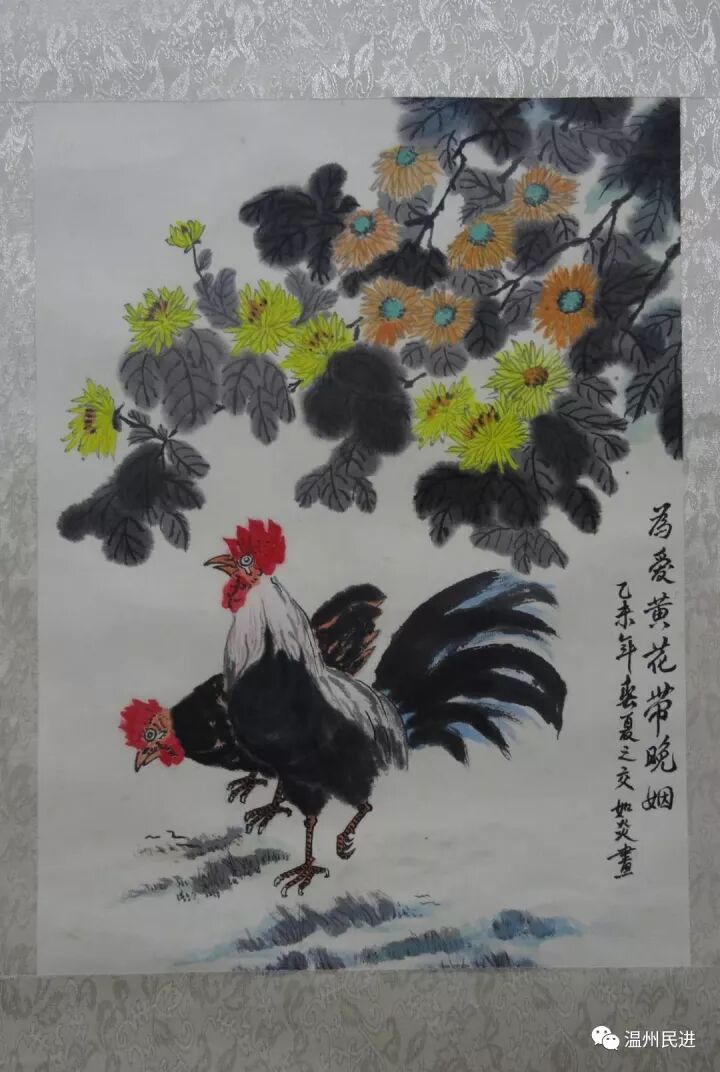 為愛黄花带晚姻
乙未年春夏之交 如炎畫
温州民进